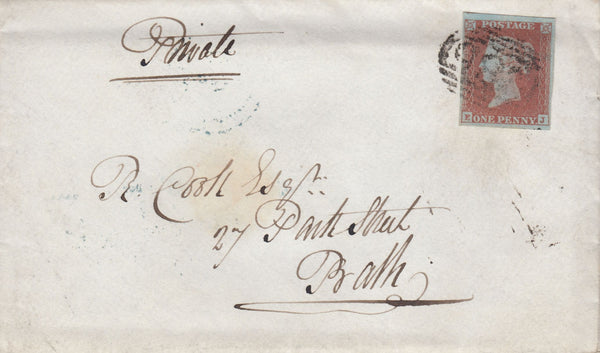 Private
POSTAGE
E ONE PENNY J
R. Cook Esqre
27 Park Street
Bath